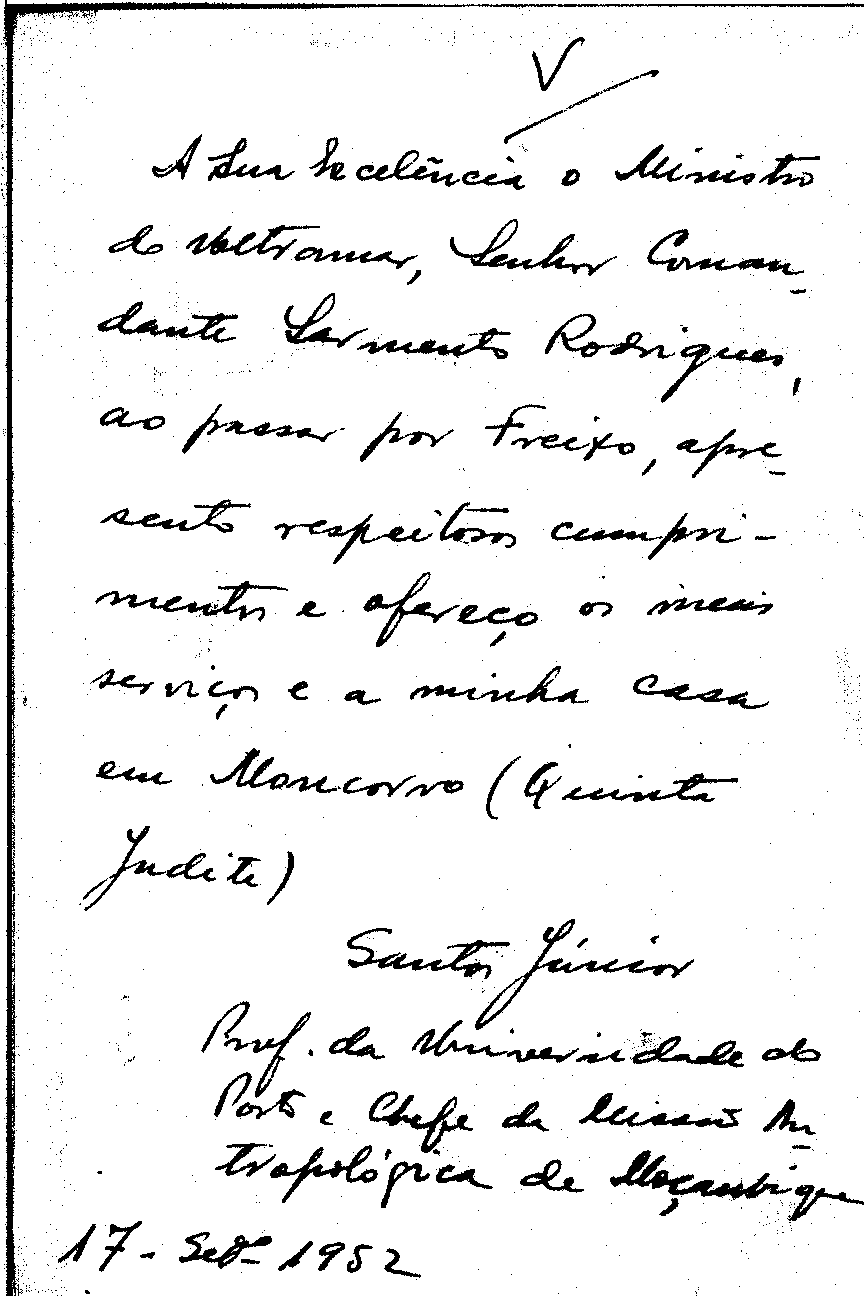 V
A Sua Excelência o Ministro
do Ultramar, Senhor Coman-
dante Sarmento Rodrigues,
ao passar por Freixo, apre-
sento respeitosos cumpri-
mentos e ofereço os meus
serviços e a minha casa
em Moncorvo (Quinta
Judite)
Santos Júnior
Prof. da Universidade do
Porto e Chefe da Missão An-
tropológica de Moçambique
17 - Setº 1952